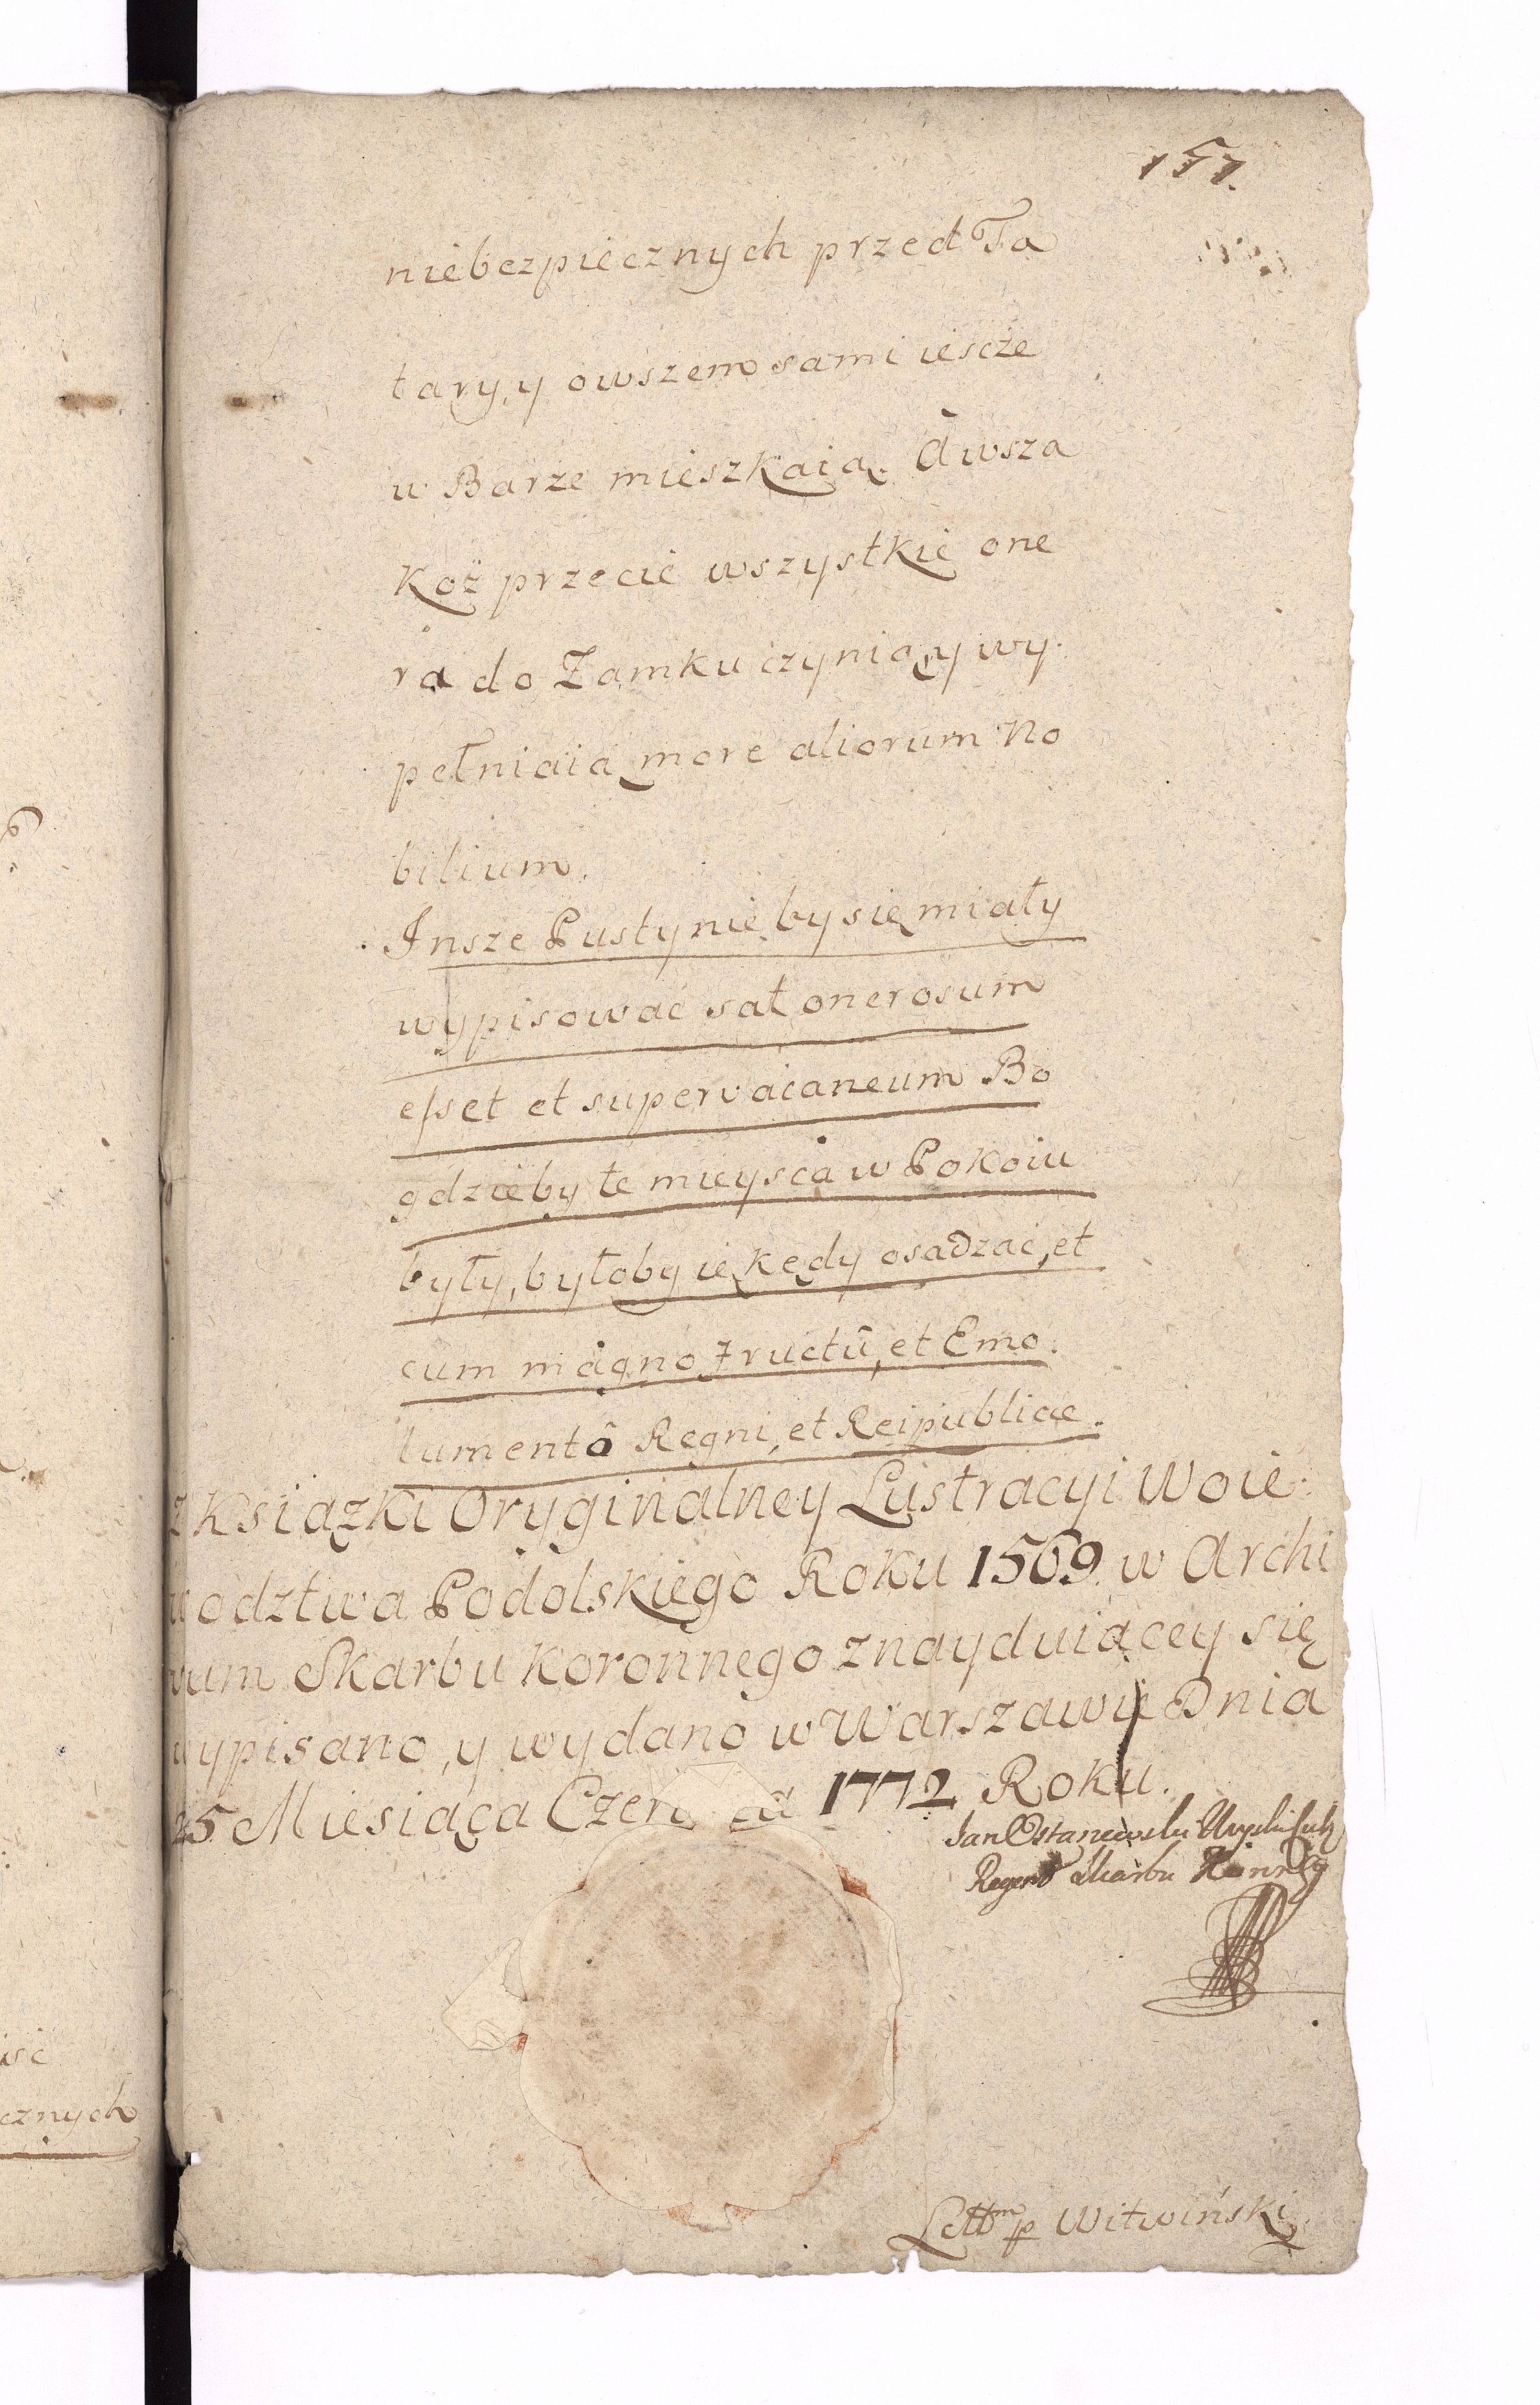 151.
niebezpiecznych przed Ta
tary, y owszem sami iescze
w Barze mieszkaią. Awsza
koż przecie wszystkie one
ra do Zamku czynią, y wy.
pełniaią more aliorum No
bilium.
Insze Pustynie by się miały
wypisować sat onerosum
esset et supervacaneum Bo
gdzieby te mieysca w Pokoiu
były, byłoby ie kędy osadzać, et
cum magno Fructû, et Emo.
lumentô Regni, et Reipublicae.
z Ksiązki Oryginalney Lustracyi Woie:
wodztwa Podolskiego Roku 1569. w Archi
vum Skarbu Koronnego znayduiącey się
wypisano, y wydano w Warszawie Dnia
25 Miesiąca Czer ca 1772 Roku.
Jan Ostanewski
Regent Skarbu
Lectm p Witwiński
isc
cznych